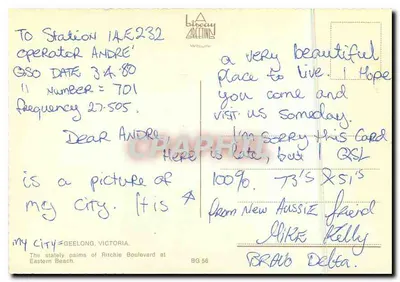 biscay
GREETINGS
TO Station 1AE232
operator ANDRÉ
QSO DATE 3.4.80
" NUMBER = 701
frequency 27.505.
Dear Andre
Here
is a picture of
my City. It is
a very beautiful
place to live. I Hope
you come and
visit us someday.
I am sorry this Card
is late, but QSL
100%. 73's & 51's
from New Aussie friend
Mike Kelly
BRAVO Delta.
my City = GEELONG, VICTORIA.
The stately palms of Ritchie Boulevard at
Eastern Beach.
BG 56